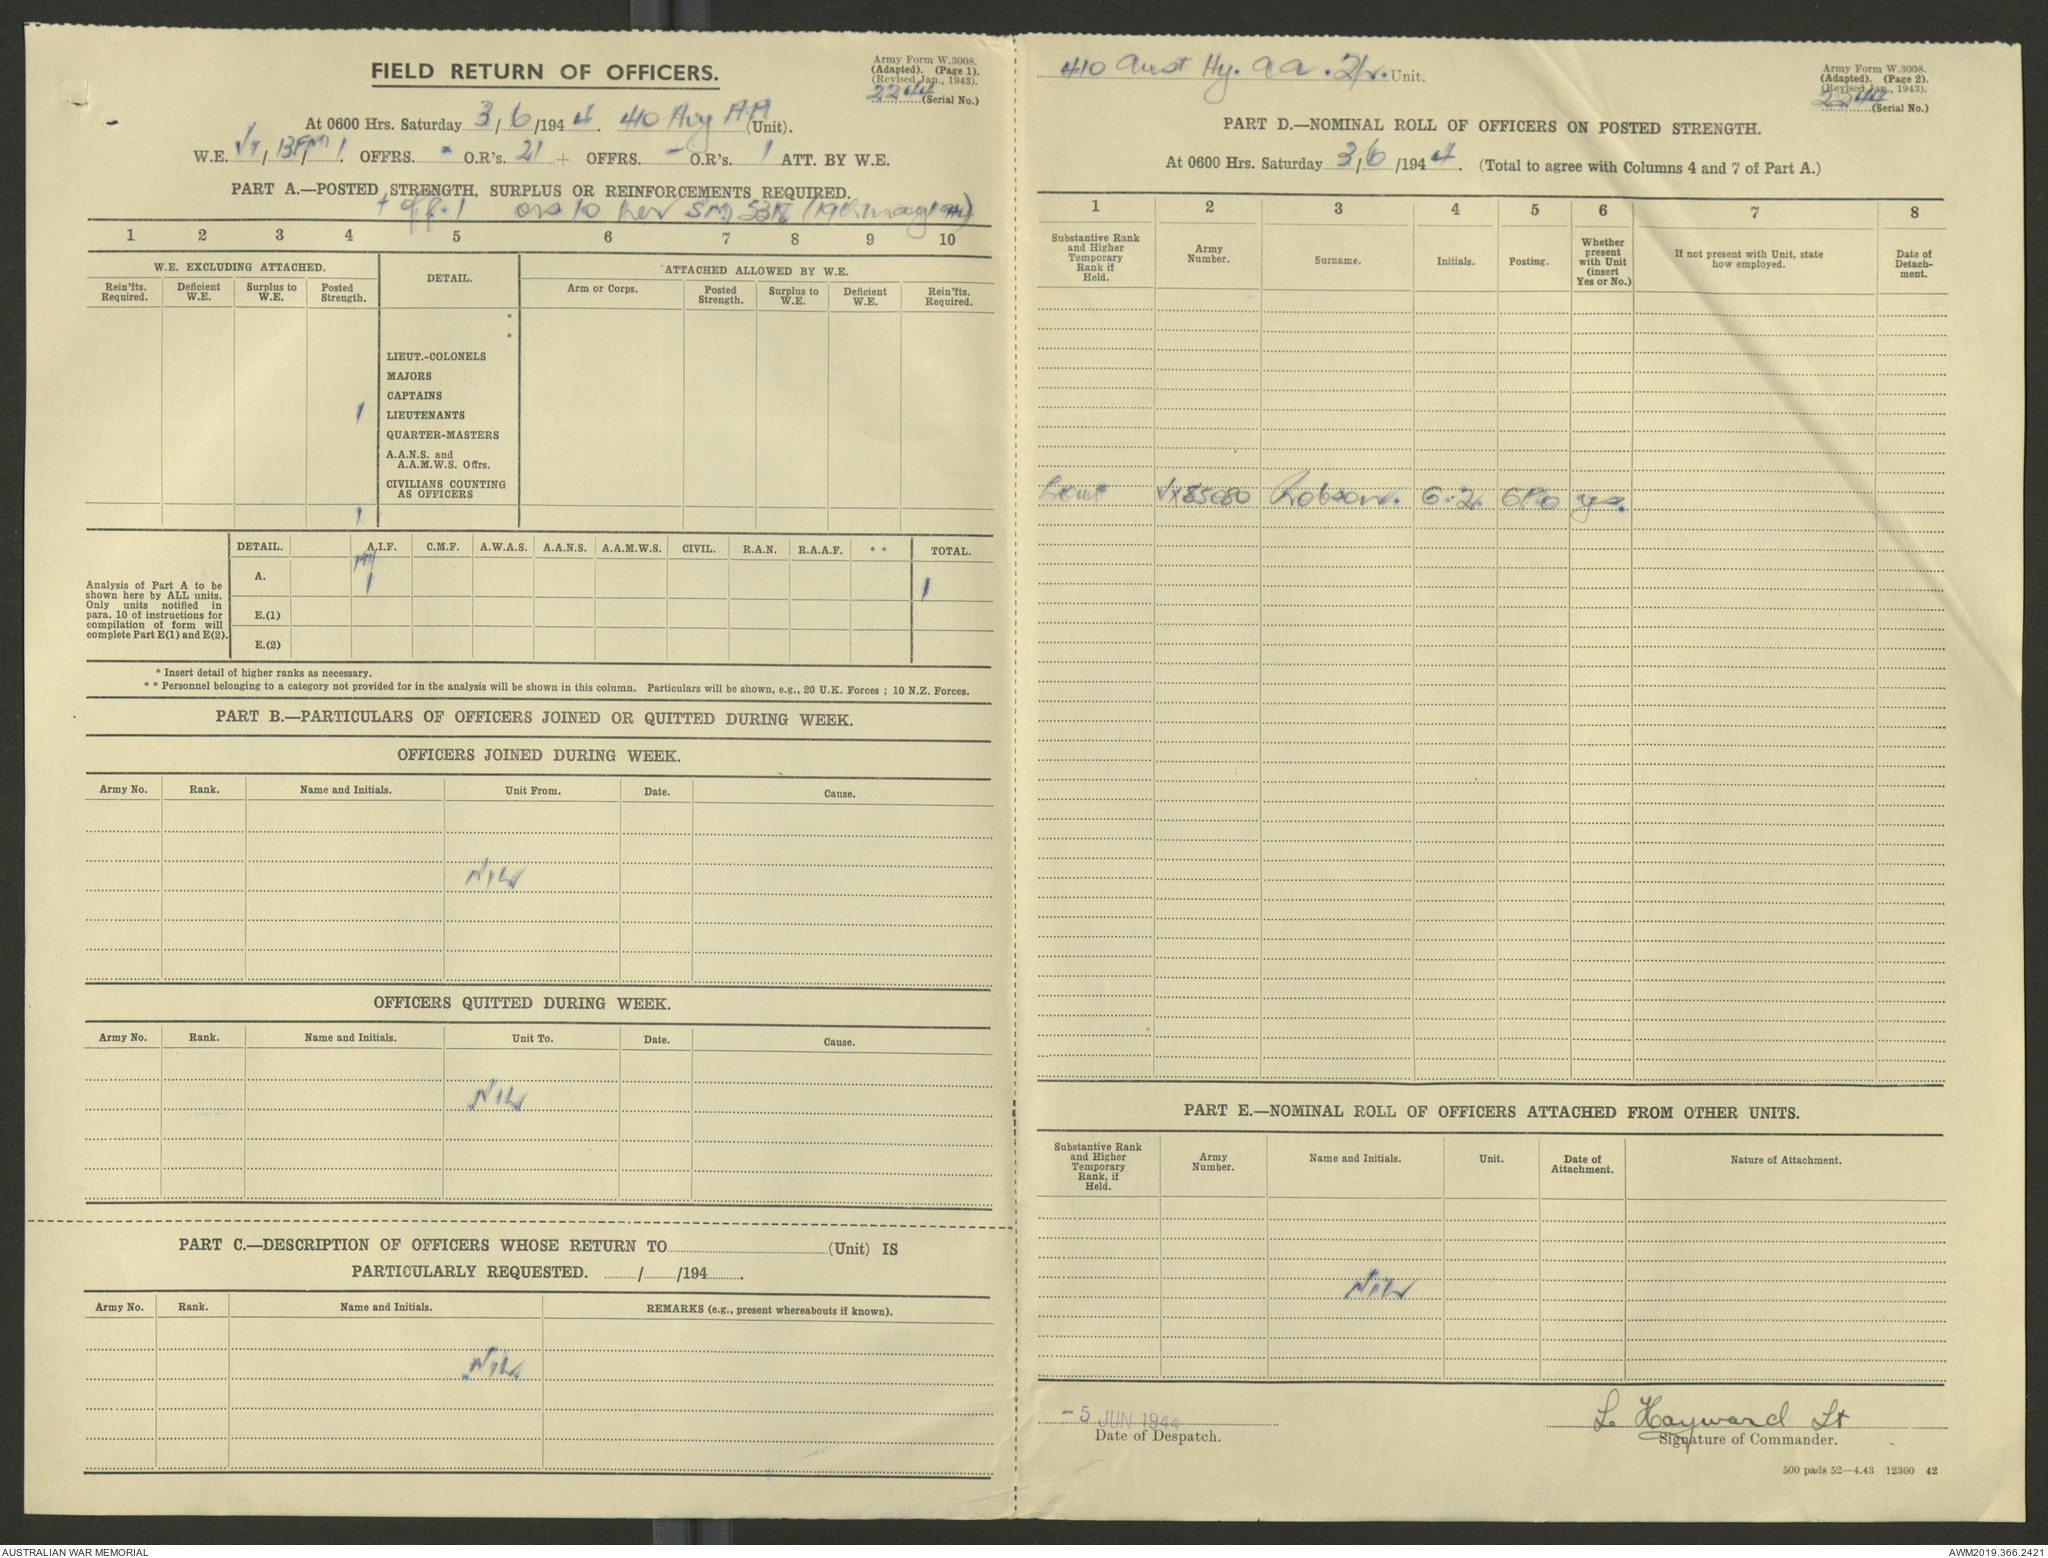 FIELD RETURN OF OFFICERS.
Army Form W.3008.
(Adapted). (Page 1).
(Revised Jan., 1943).
2244 (Serial No.)
At 0600 Hrs. Saturday 3/6/1944. 410 Hvy AA (Unit).
W.E. OFFRS. O.R's. 21 + OFFRS. - O.R's. 1 ATT. BY W.E.
PART A.—POSTED STRENGTH, SURPLUS OR REINFORCEMENTS REQUIRED.
+ off. 1 ors 10
1 2 3 4 5 6 7 8 9 10
W.E. EXCLUDING ATTACHED.
DETAIL.
ATTACHED ALLOWED BY W.E.
Rein'fts. Required.
Deficient W.E.
Surplus to W.E.
Posted Strength.
Arm or Corps.
Posted Strength.
Surplus to W.E.
Deficient W.E.
Rein'fts. Required.
*
*
LIEUT.-COLONELS
MAJORS
CAPTAINS
1 LIEUTENANTS
QUARTER-MASTERS
A.A.N.S. and
A.A.M.W.S. Offrs.
CIVILIANS COUNTING
AS OFFICERS
1
Analysis of Part A to be
shown here by ALL units.
Only units notified in
para. 10 of instructions for
compilation of form will
complete Part E(1) and E(2).
DETAIL. A.I.F. C.M.F. A.W.A.S. A.A.N.S. A.A.M.W.S. CIVIL. R.A.N. R.A.A.F. * * TOTAL.
A. 1 1
E.(1)
E.(2)
* Insert detail of higher ranks as necessary.
* * Personnel belonging to a category not provided for in the analysis will be shown in this column. Particulars will be shown, e.g., 20 U.K. Forces ; 10 N.Z. Forces.
PART B.—PARTICULARS OF OFFICERS JOINED OR QUITTED DURING WEEK.
OFFICERS JOINED DURING WEEK.
Army No. Rank. Name and Initials. Unit From. Date. Cause.
NIL
OFFICERS QUITTED DURING WEEK.
Army No. Rank. Name and Initials. Unit To. Date. Cause.
NIL
PART C.—DESCRIPTION OF OFFICERS WHOSE RETURN TO (Unit) IS
PARTICULARLY REQUESTED. / /194 .
Army No. Rank. Name and Initials. REMARKS (e.g., present whereabouts if known).
NIL
410 Aust Hy. AA. Unit.
Army Form W.3008.
(Adapted). (Page 2).
(Revised Jan., 1943).
2244 (Serial No.)
PART D.—NOMINAL ROLL OF OFFICERS ON POSTED STRENGTH.
At 0600 Hrs. Saturday 3/6/1944. (Total to agree with Columns 4 and 7 of Part A.)
1 2 3 4 5 6 7 8
Substantive Rank and Higher Temporary Rank if Held.
Army Number.
Surname.
Initials.
Posting.
Whether present with Unit (insert Yes or No.)
If not present with Unit, state how employed.
Date of Detach-ment.
Lieut VX85080 Robson. GPO yes.
PART E.—NOMINAL ROLL OF OFFICERS ATTACHED FROM OTHER UNITS.
Substantive Rank and Higher Temporary Rank, if Held.
Army Number.
Name and Initials.
Unit.
Date of Attachment.
Nature of Attachment.
NIL
-5 JUN 1944
Date of Despatch.
L Hayward Lt
Signature of Commander.
500 pads 52—4.43 12360 42
AUSTRALIAN WAR MEMORIAL
AWM2019.366.2421